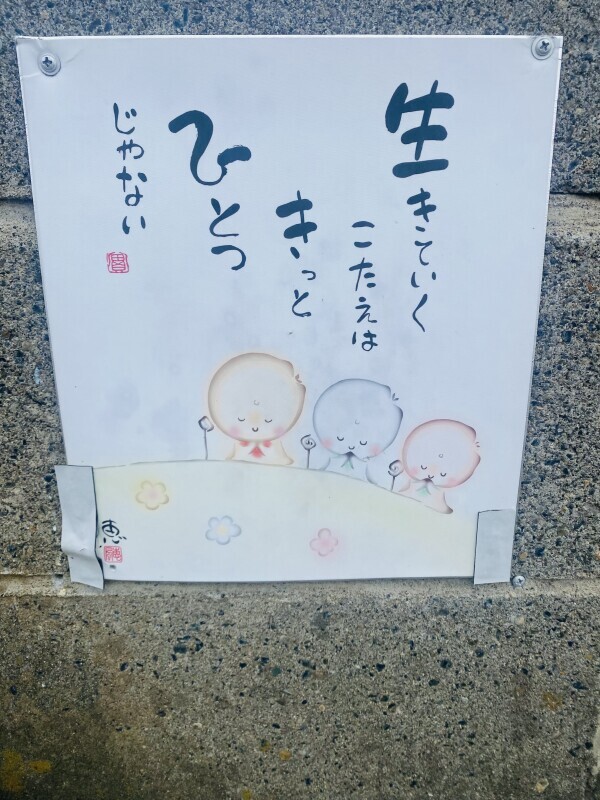 生きていく
こたえは
きっと
ひとつ
じゃない
恵